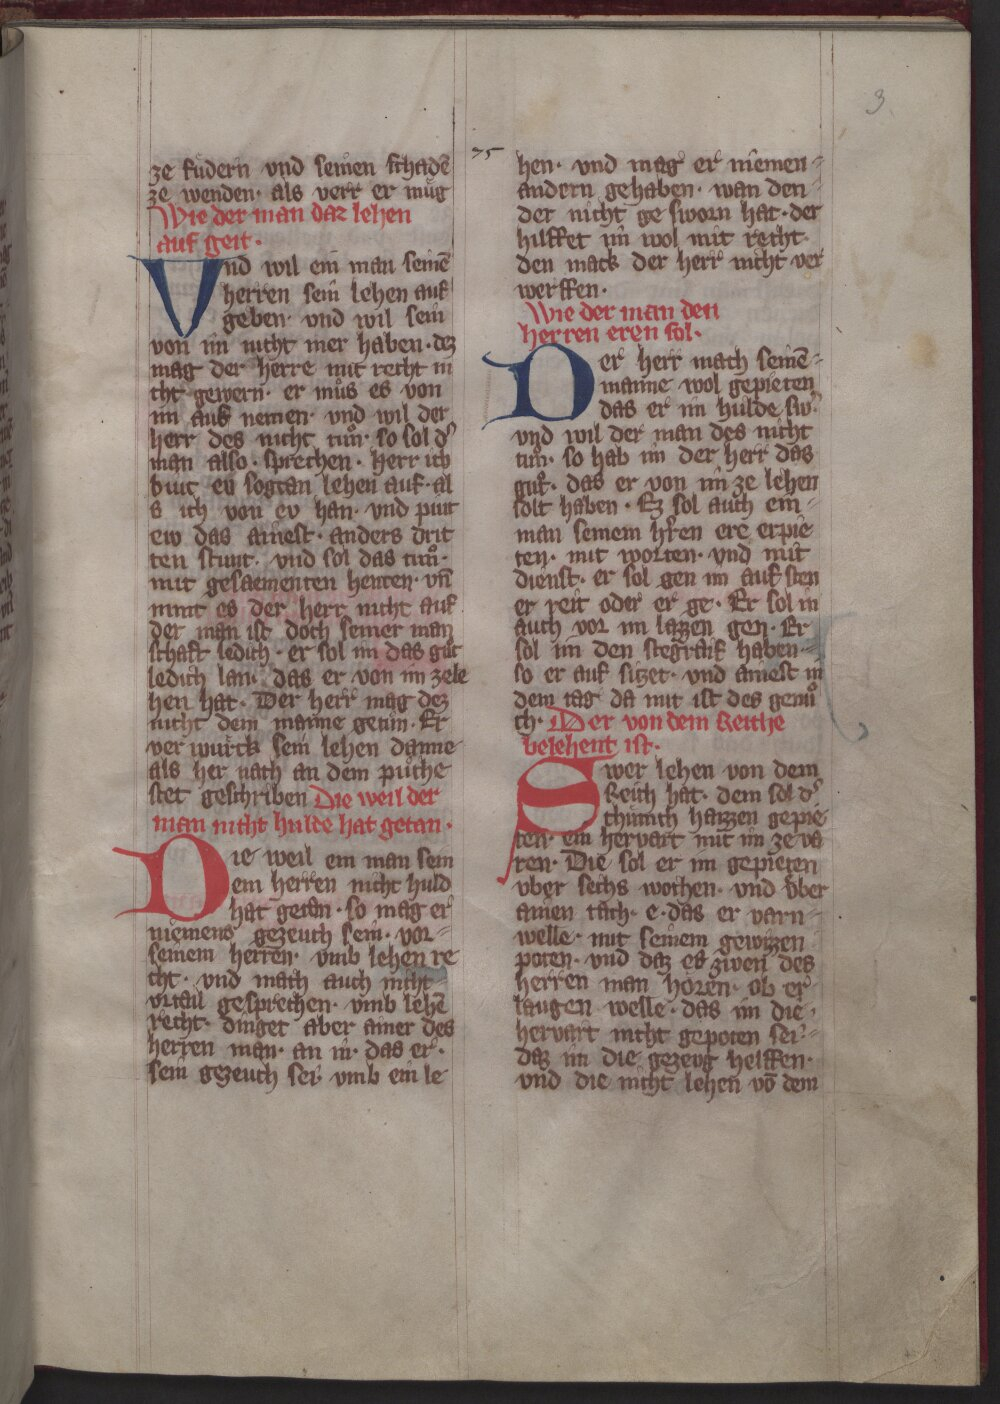 3
75
ze fudern vnd seinen schadē
ze wenden· als verr er mug
Wie der man daz lehen
auf geit·
Vnd wil ein man seinē
herren sein lehen auf
geben· vnd wil sein
von im nicht mer haben· dez
mag der herre mit recht ni
cht gewern· er můs es von
im auf nemen· vnd wil der
herr des nicht tůn· so sol d᾽
man also· sprechen· herr ich
biut eu sogtan lehen auf· al
s ich von ev han· vnd piut
ew das ainest· anders drit
ten stunt· vnd sol das tůn·
mit gesamenten henten· vn̄
nimt es der herr nicht auf
der man ist doch seiner man
schaft ledich· er sol im das gůt
ledich lan· das er von im zele
hen hat· Der herr mag dez
nicht dem manne getun· Er
ver wurck sein lehen danne
als her nach an dem půche
stet geschriben Die weil der
man nicht hulde hat getan·
Die weil ein man sein
em herren nicht huld
hat getan· so mag er
niemens gezeuch sein· vor-
seinem herren· vmb lehen re
cht· vnd mach auch nicht-
vrtail gesprechen· vmb lehē
recht· dinget aber ainer des
herren man· an in· das er·
sein gezeuch sei· vmb ein le
hen· vnd mag er niemen-
andern gehaben· wan den-
der nicht ge sworn hat· der
hilffet im wol mit recht·
den mack der herr nicht ver
werffen·
Wie der man den
herren eren sol·
Der herr mach seinē-
manne wol gepieten
das er im hulde sw᾽·
vnd wil der man des nicht
tůn· so hab im der herr das
gůt· das er von im ze lehen
solt haben· Ez sol auch ein-
man seinem hr̄en ere erpie
ten· mit worten· vnd mit
dienst· er sol gen im auf sten
er reit oder er ge· Er sol in
auch vor im lazzen gen· Er
sol im den stegraif haben-
so er auf sizet· vnd ainest in
dem tag da mit ist des genů
ch· Der von dem Reiche
belehent ist·
Swer lehen von dem
Reich hat· dem sol d᾽
chunich haizzen gepie
ten ein hervart mit im ze va
ren· Die sol er im gepieten
vber sechs wochen· vnd vber
ainen tach· e· das er varn-
welle· mit seinem gewizzen
poten· vnd daz es zwen des
herren man horen· ob er
laugen welle· das im die·
hervart nicht gepoten sei-
daz im die gezevg helffen·
vnd die nicht lehen vō dem